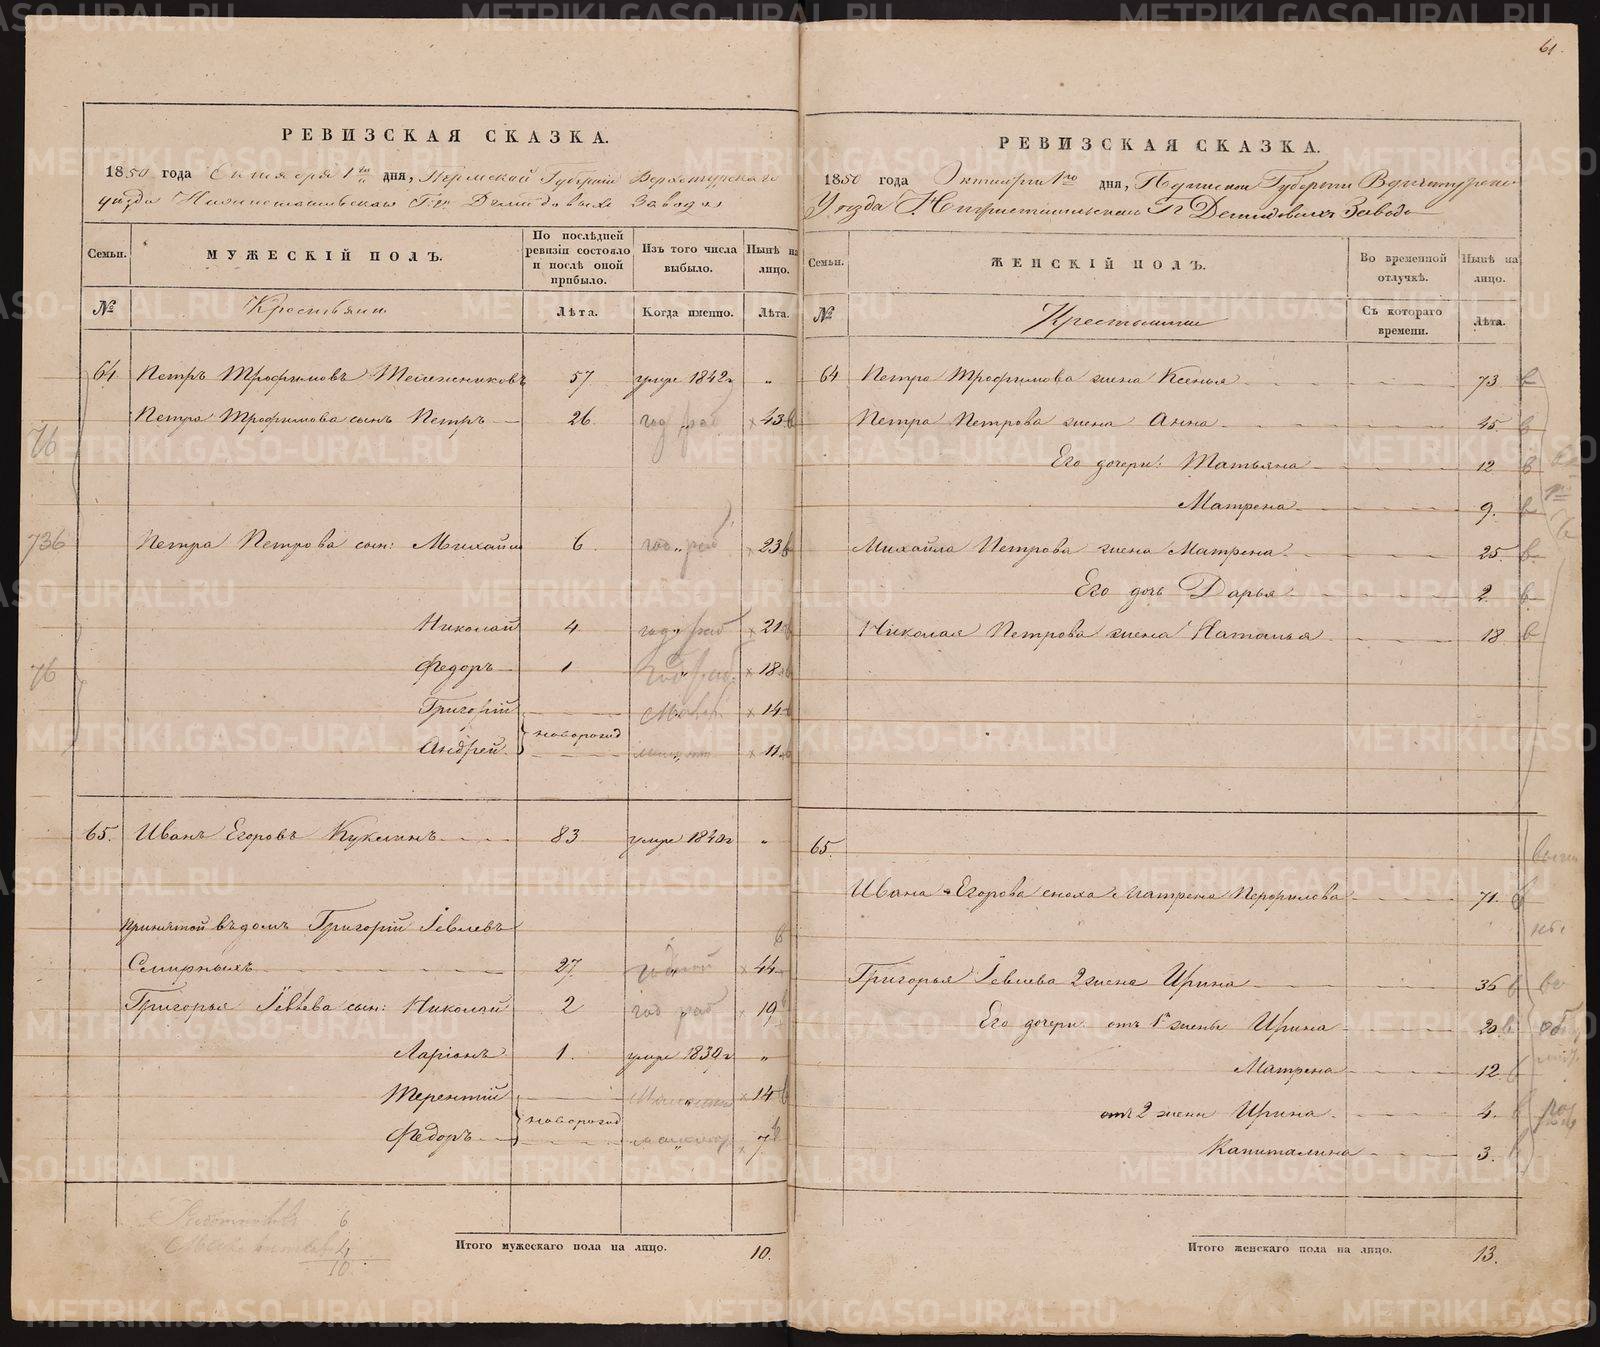 61.
РЕВИЗСКАЯ СКАЗКА.
1850 года Октября 1го дня, Пермской Губерніи Верхотурскаго
уѣзда Г.г. Демидовыхъ Завода
Семьи.
МУЖЕСКІЙ ПОЛЪ.
По послѣдней ревизіи состояло и послѣ оной прибыло.
Изъ того числа выбыло.
Нынѣ на лицо.
№
Крестьяни
Лѣта.
Когда именно.
Лѣта.
64 Петръ Трофимовъ 57 умре 1842г „
Петра Трофимова сынъ Петръ 26 год раб 43
76
736
Петра Петрова сын: Михайло 6 год раб 23
Николай 4 год раб 21
Федоръ 1 год раб 18
76
Григорій 14
новорожд
Андрей 11
65. Иванъ Егоровъ Кукминъ 83 умре 1840г „
принятой въ домъ Григорій Іевлевъ
Смирныхъ 27 44
Григорья Іевлева сын: Николай 2 год раб 19
Ларіонъ 1. умре 1839г „
Терентій 14
новорожд
Федоръ 7
6
4
10
Итого мужескаго пола на лицо. 10.
РЕВИЗСКАЯ СКАЗКА.
1850 года Октября 1го дня, Пермской Губерніи
Уѣзда Г Демидовыхъ Завода
Семьи.
ЖЕНСКІЙ ПОЛЪ.
Во временной отлучкѣ.
Нынѣ на лицо.
№
Съ котораго времени.
Лѣта.
64 Петра Трофимова жена Ксенья 73
Петра Петрова жена Анна 45
Его дочери: Татьяна 12
Матрена 9.
Михайла Петрова жена Матрена 25
Его дочь Дарья 2
Николая Петрова жена Наталья 18
65.
Ивана Егорова сноха Матрена Перфилова 71.
Григорья Іевлева 2 жена Ирина 36
Его дочери: отъ 1й жены Ирина 20
Матрена 12
отъ 2 жены Ирина 4.
Капиталина 3.
Итого женскаго пола на лицо. 13.
METRIKI.GASO-URAL.RU